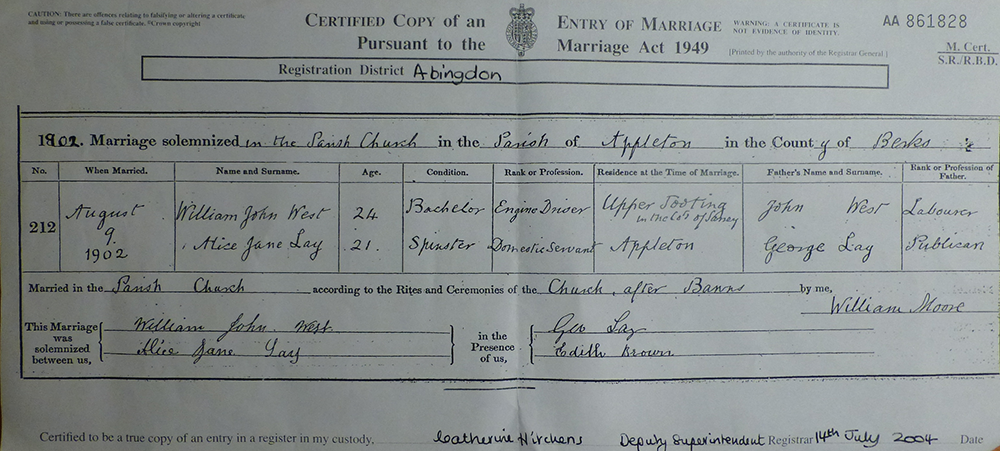 CAUTION: There are offences relating to falsifying or altering a certificate
and using or possessing a false certificate. ©Crown copyright
CERTIFIED COPY of an ENTRY OF MARRIAGE
Pursuant to the Marriage Act 1949
WARNING: A CERTIFICATE IS
NOT EVIDENCE OF IDENTITY.
[Printed by the authority of the Registrar General]
AA 861828
M. Cert.
S.R./R.B.D.
Registration District Abingdon
1902. Marriage solemnized in the Parish Church in the Parish of Appleton in the County of Berks
No. When Married. Name and Surname. Age. Condition. Rank or Profession. Residence at the Time of Marriage. Father's Name and Surname. Rank or Profession of Father.
212 August 9. 1902
William John West 24 Bachelor Engine Driver Upper Tooting in the Co. of Surrey John West Labourer
Alice Jane Lay 21. Spinster Domestic Servant Appleton George Lay Publican
Married in the Parish Church according to the Rites and Ceremonies of the Church, after Banns by me,
William Moore
This Marriage was solemnized between us,
William John West
Alice Jane Lay
in the Presence of us,
Geo Lay
Edith Brown
Certified to be a true copy of an entry in a register in my custody, Catherine Hirchens Deputy Superintendent Registrar 14th July 2004 Date